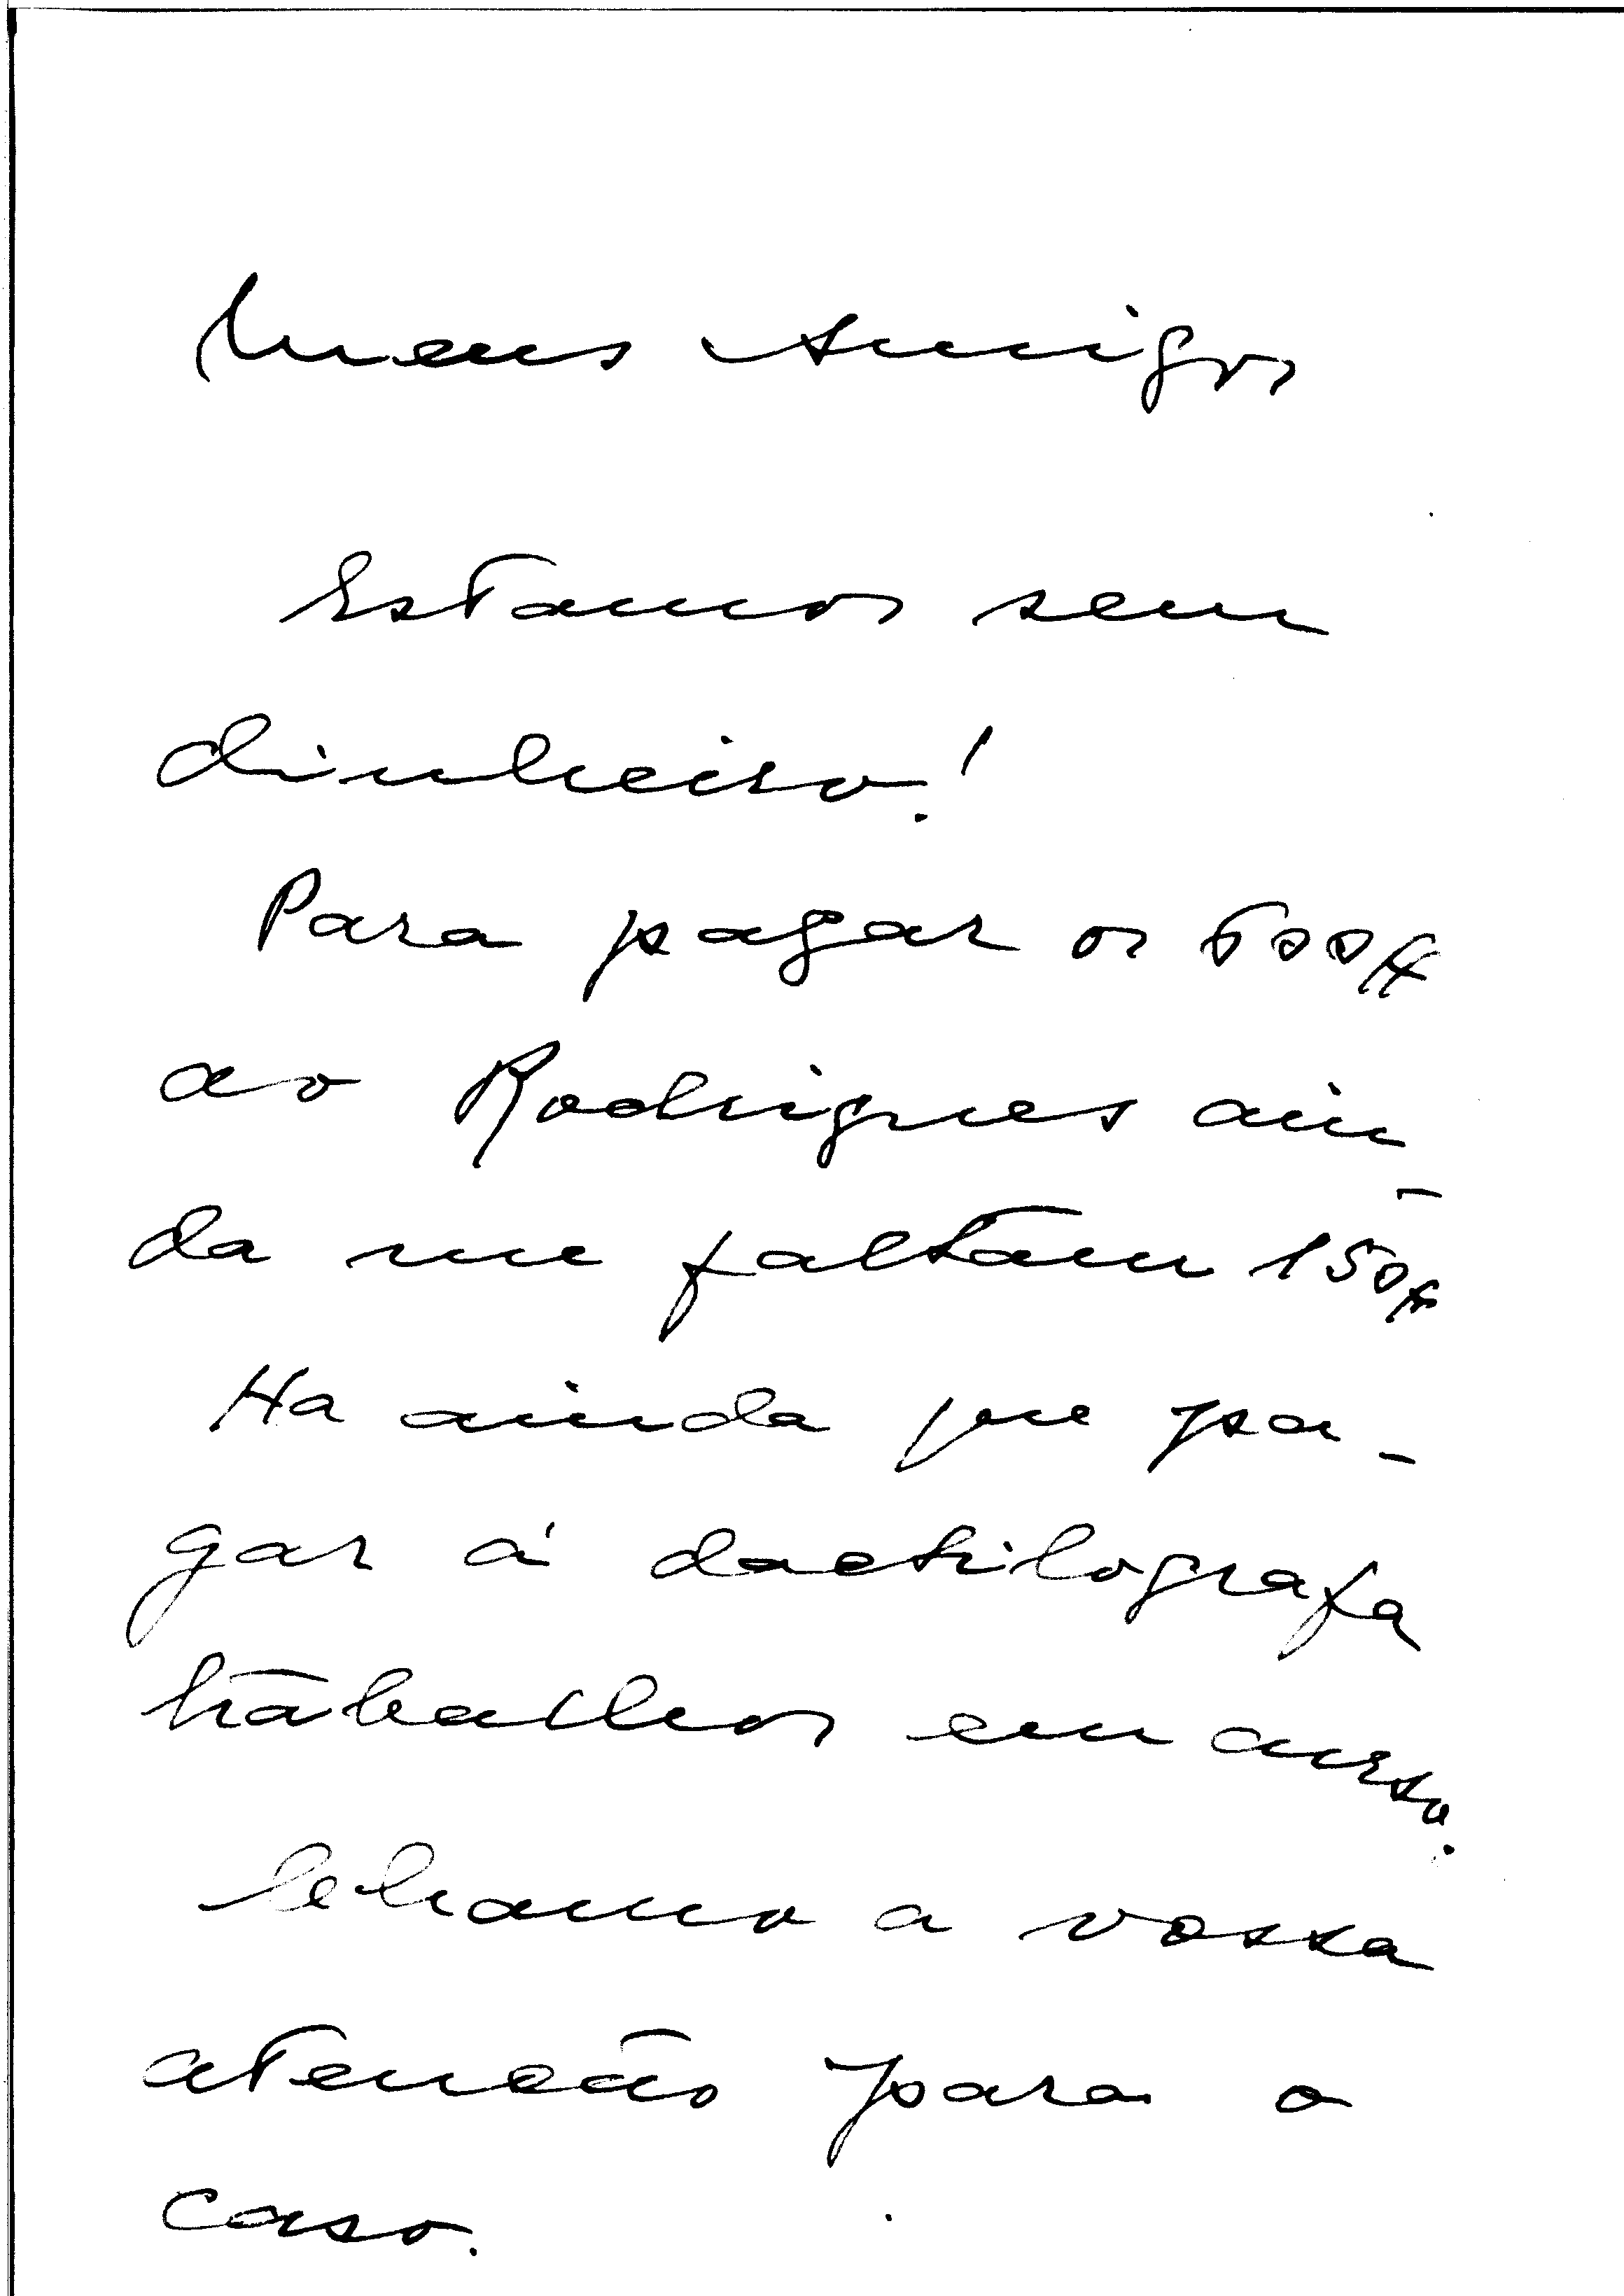 Meus Amigos
Estamos sem
dinheiro!
Para pagar os 500$
ao Rodrigues ain
da me faltam 150$
Ha ainda que pa-
gar á dactilografa
trabalhos em curso.
Chamo a vossa
atenção para o
caso.